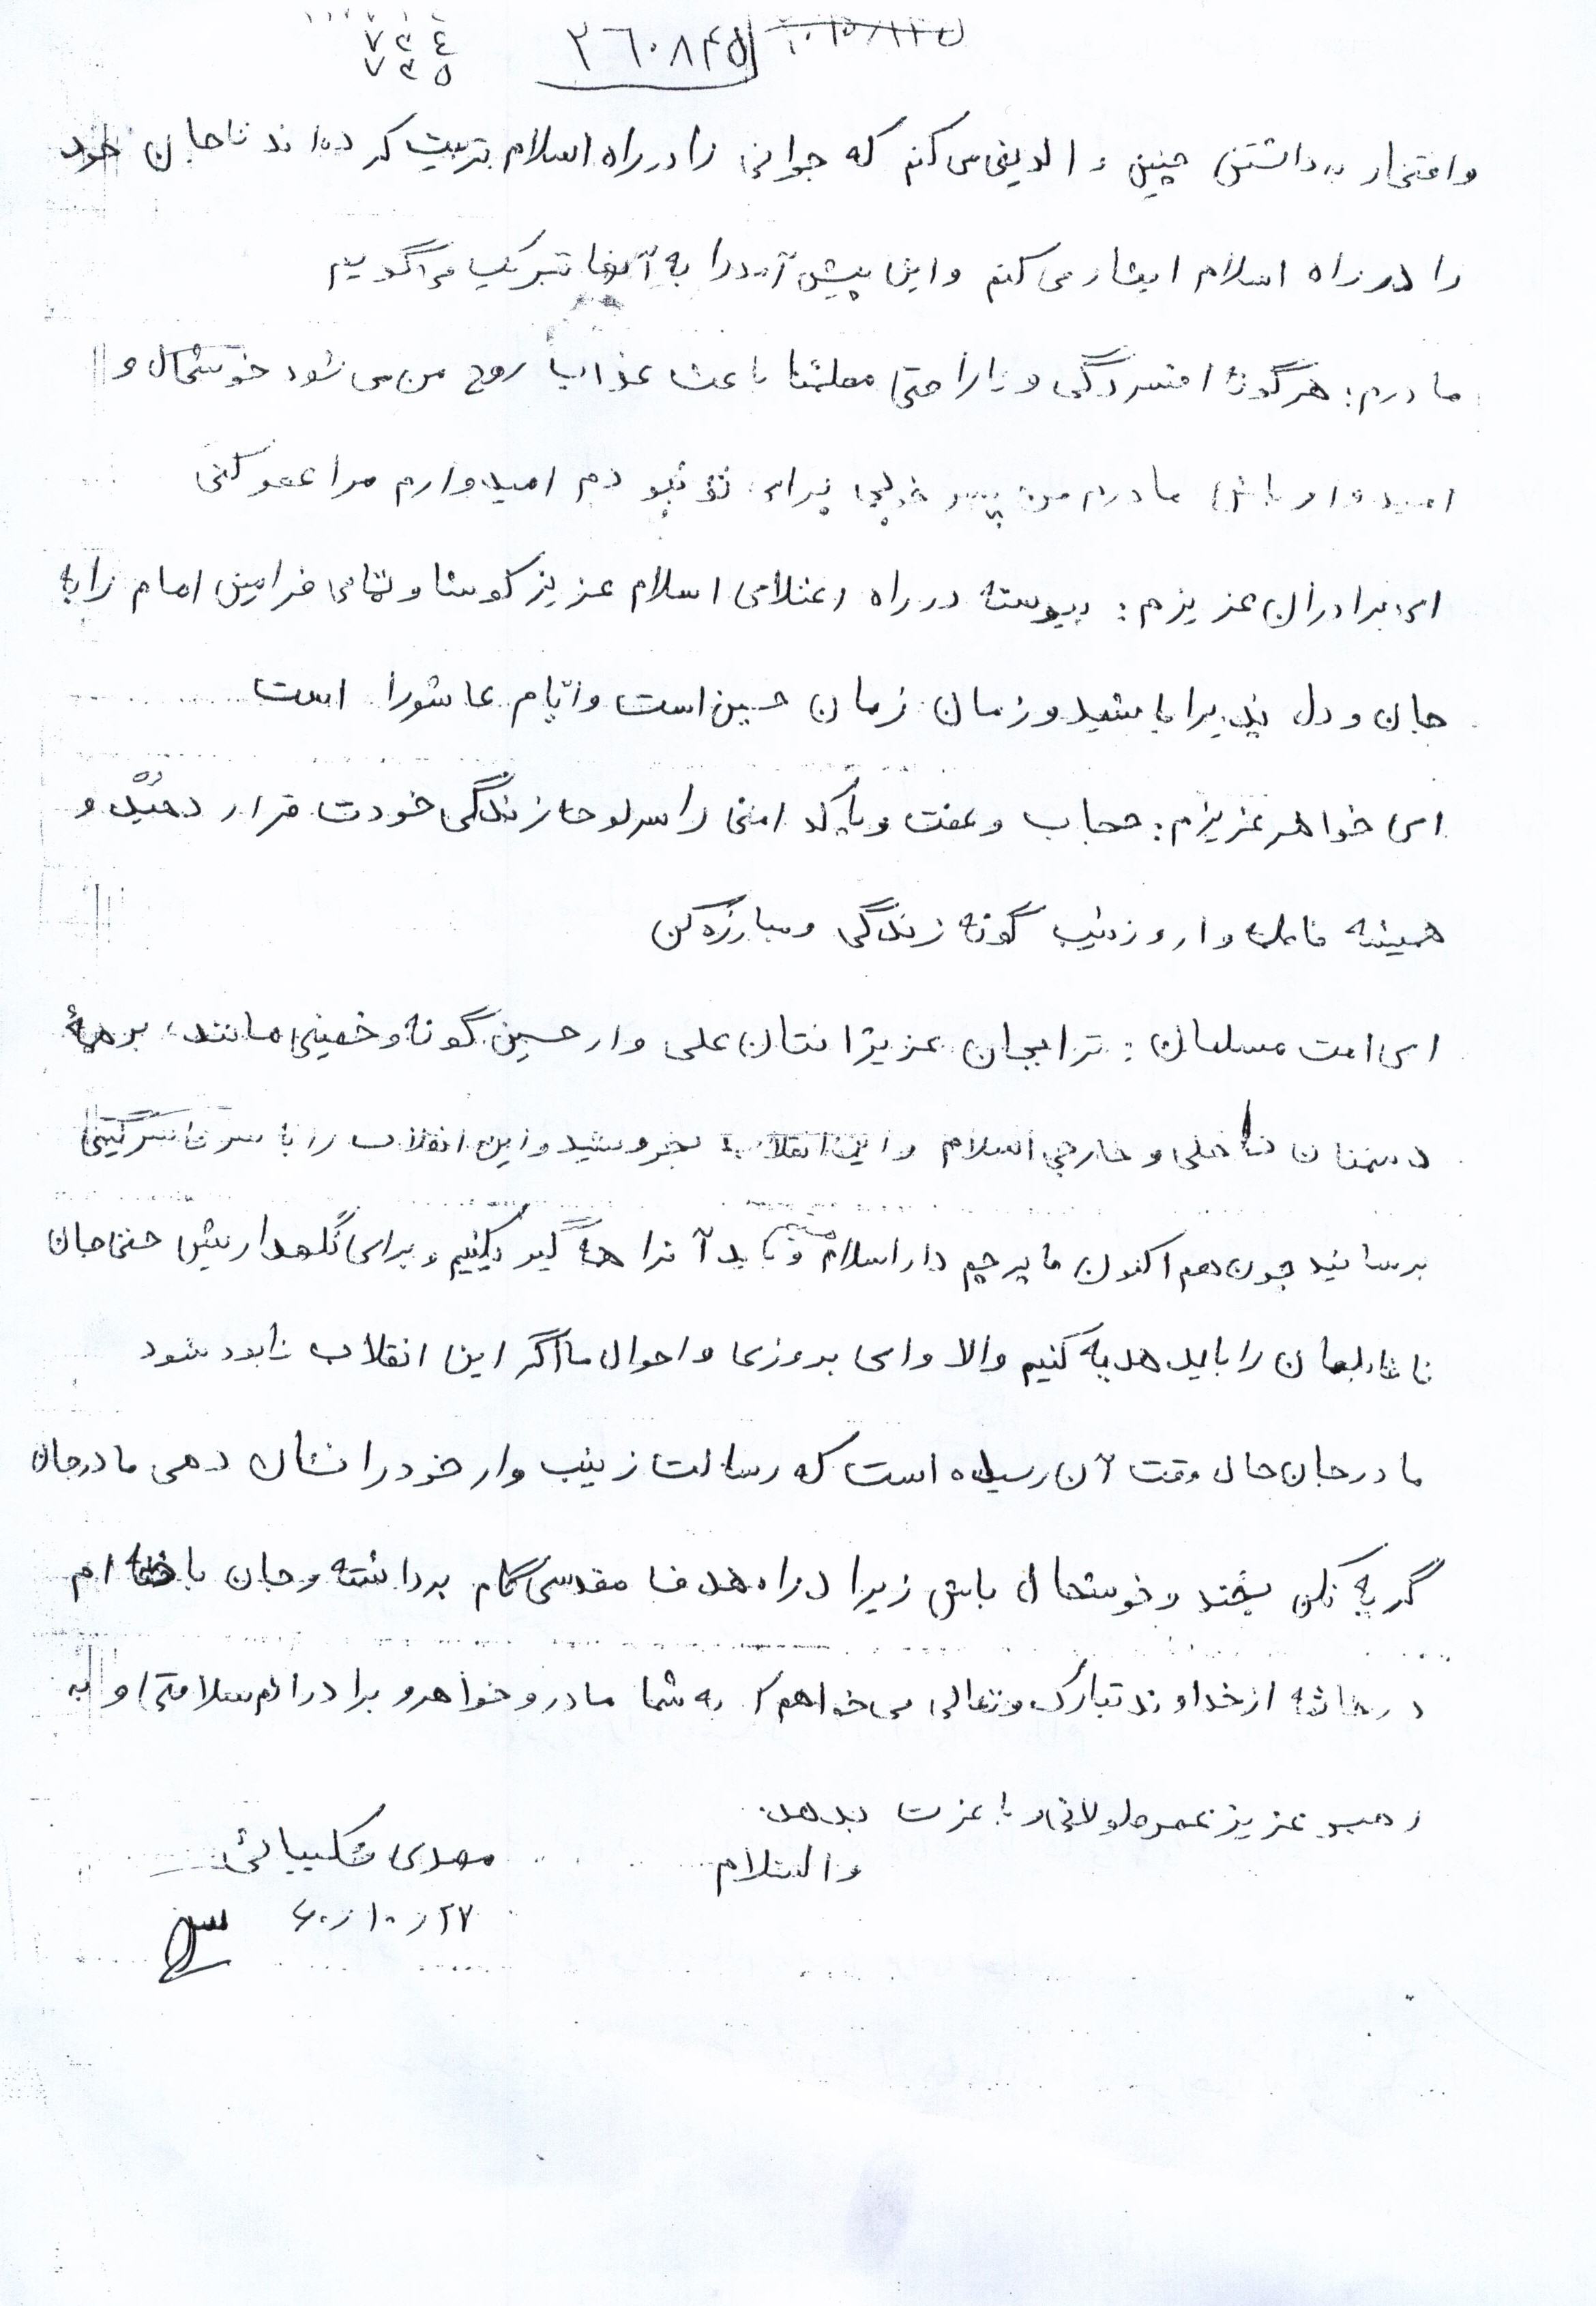 ۷۳٤
۷۳۵
۲۶۰۸۴۵
و افتخار به داشتن چنین والدینی می کنم که جوانی را در راه اسلام تربیت کرده اند تا جان خود
را در راه اسلام ایثار می کنم و این پیش آمد را به آنها تبریک می گویم
مادرم: هرگونه افسردگی و ناراحتی مطمئنا باعث عذاب روح من می شود خوشحال و
امیدوار باش مادرم من پسر خوبی برای تو نبودم امیدوارم مرا عفو کنی
ای برادران عزیزم: پیوسته در راه اعتلای اسلام عزیز کوشا و تمامی فرامین امام را به
جان و دل پذیرا باشید و زمان زمان حسین است و ایام عاشورا است
ای خواهر عزیزم: حجاب و عفت و پاکدامنی را سرلوحه زندگی خودت قرار ده و
همیشه فاطمه وار و زینب گونه زندگی و مبارزه کن
ای امت مسلمان: ترا بجان عزیزانتان علی وار حسین گونه و خمینی مانند، بر همهٔ
دشمنان داخلی و خارجی اسلام و این انقلاب بخروشید و این انقلاب را با سر تاسر گیتی
برسانید چون هم اکنون ما پرچم دار اسلام هستیم و باید آنرا همه گیر بکنیم و برای نگهداریش حتی جان
ناقابلمان را باید هدیه کنیم والا وای بروزی و احوال ما اگر این انقلاب نابود شود
مادر جان حال وقت آن رسیده است که رسالت زینب وار خود را نشان دهی مادر جان
گریه نکن بخند و خوشحال باش زیرا در راه هدف مقدسی گام برداشته و جان باخته ام
در خاتمه از خداوند تبارک و تعالی می خواهم که به شما مادر و خواهر و برادرانم سلامتی و به
رهبر عزیز عمر طولانی و با عزت بدهد.
والسلام
مهدی شکیبائی
۲۷ / ۱۰ / ۶۰